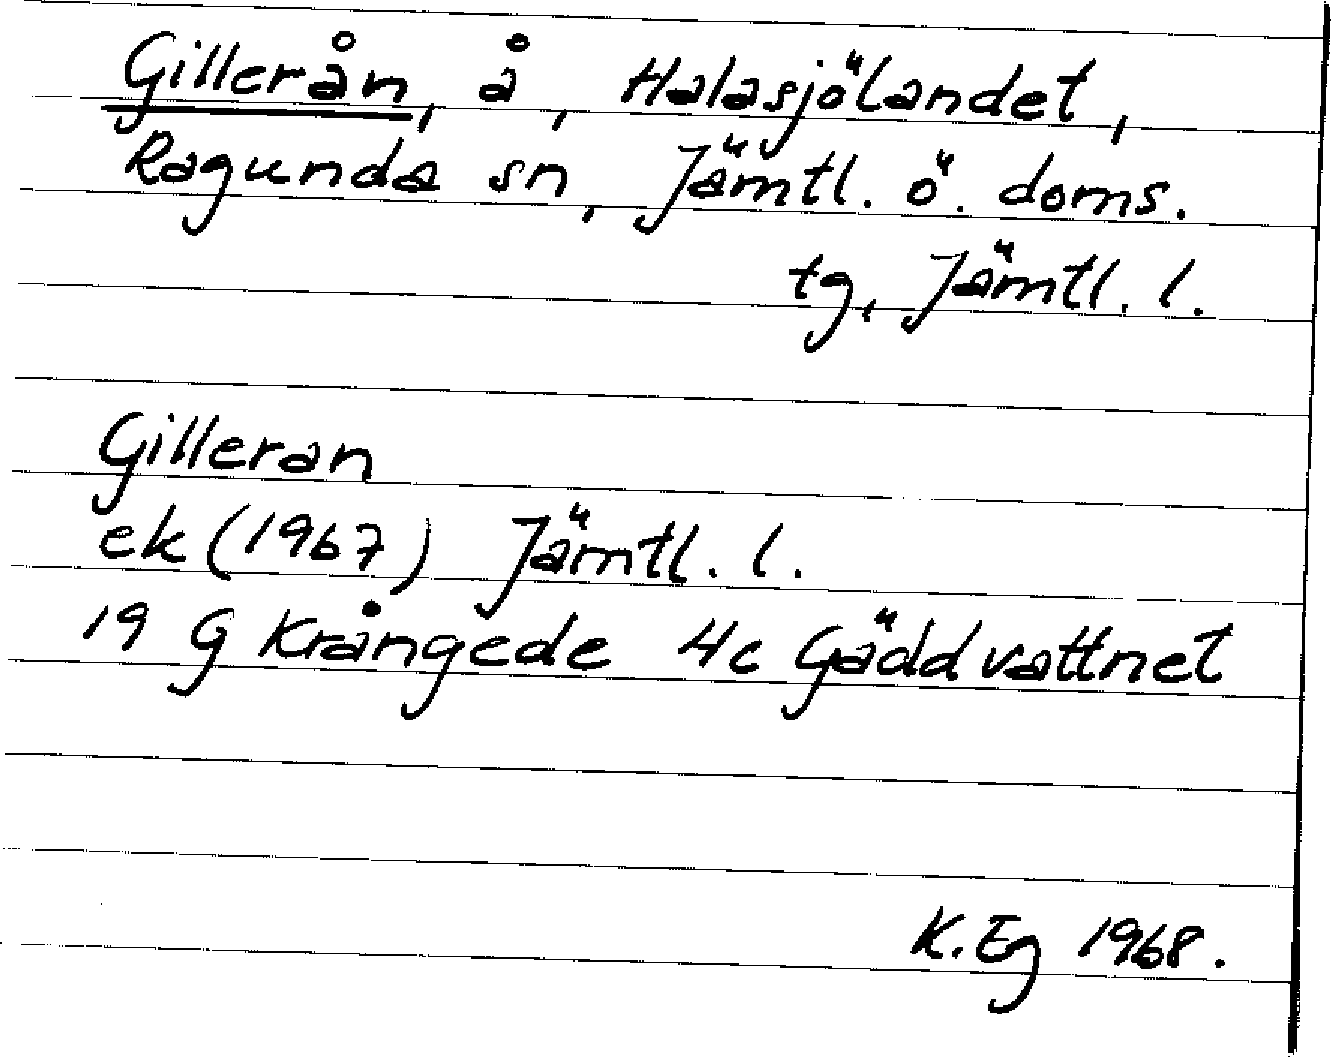 Gillerån, å, Halasjölandet,
Ragunda sn, Jämtl. ö. doms.
tg, Jämtl. l.
Gilleran
ek (1967) Jämtl. l.
19 G Krångede 4c Gäddvattnet
K. Eg 1968.